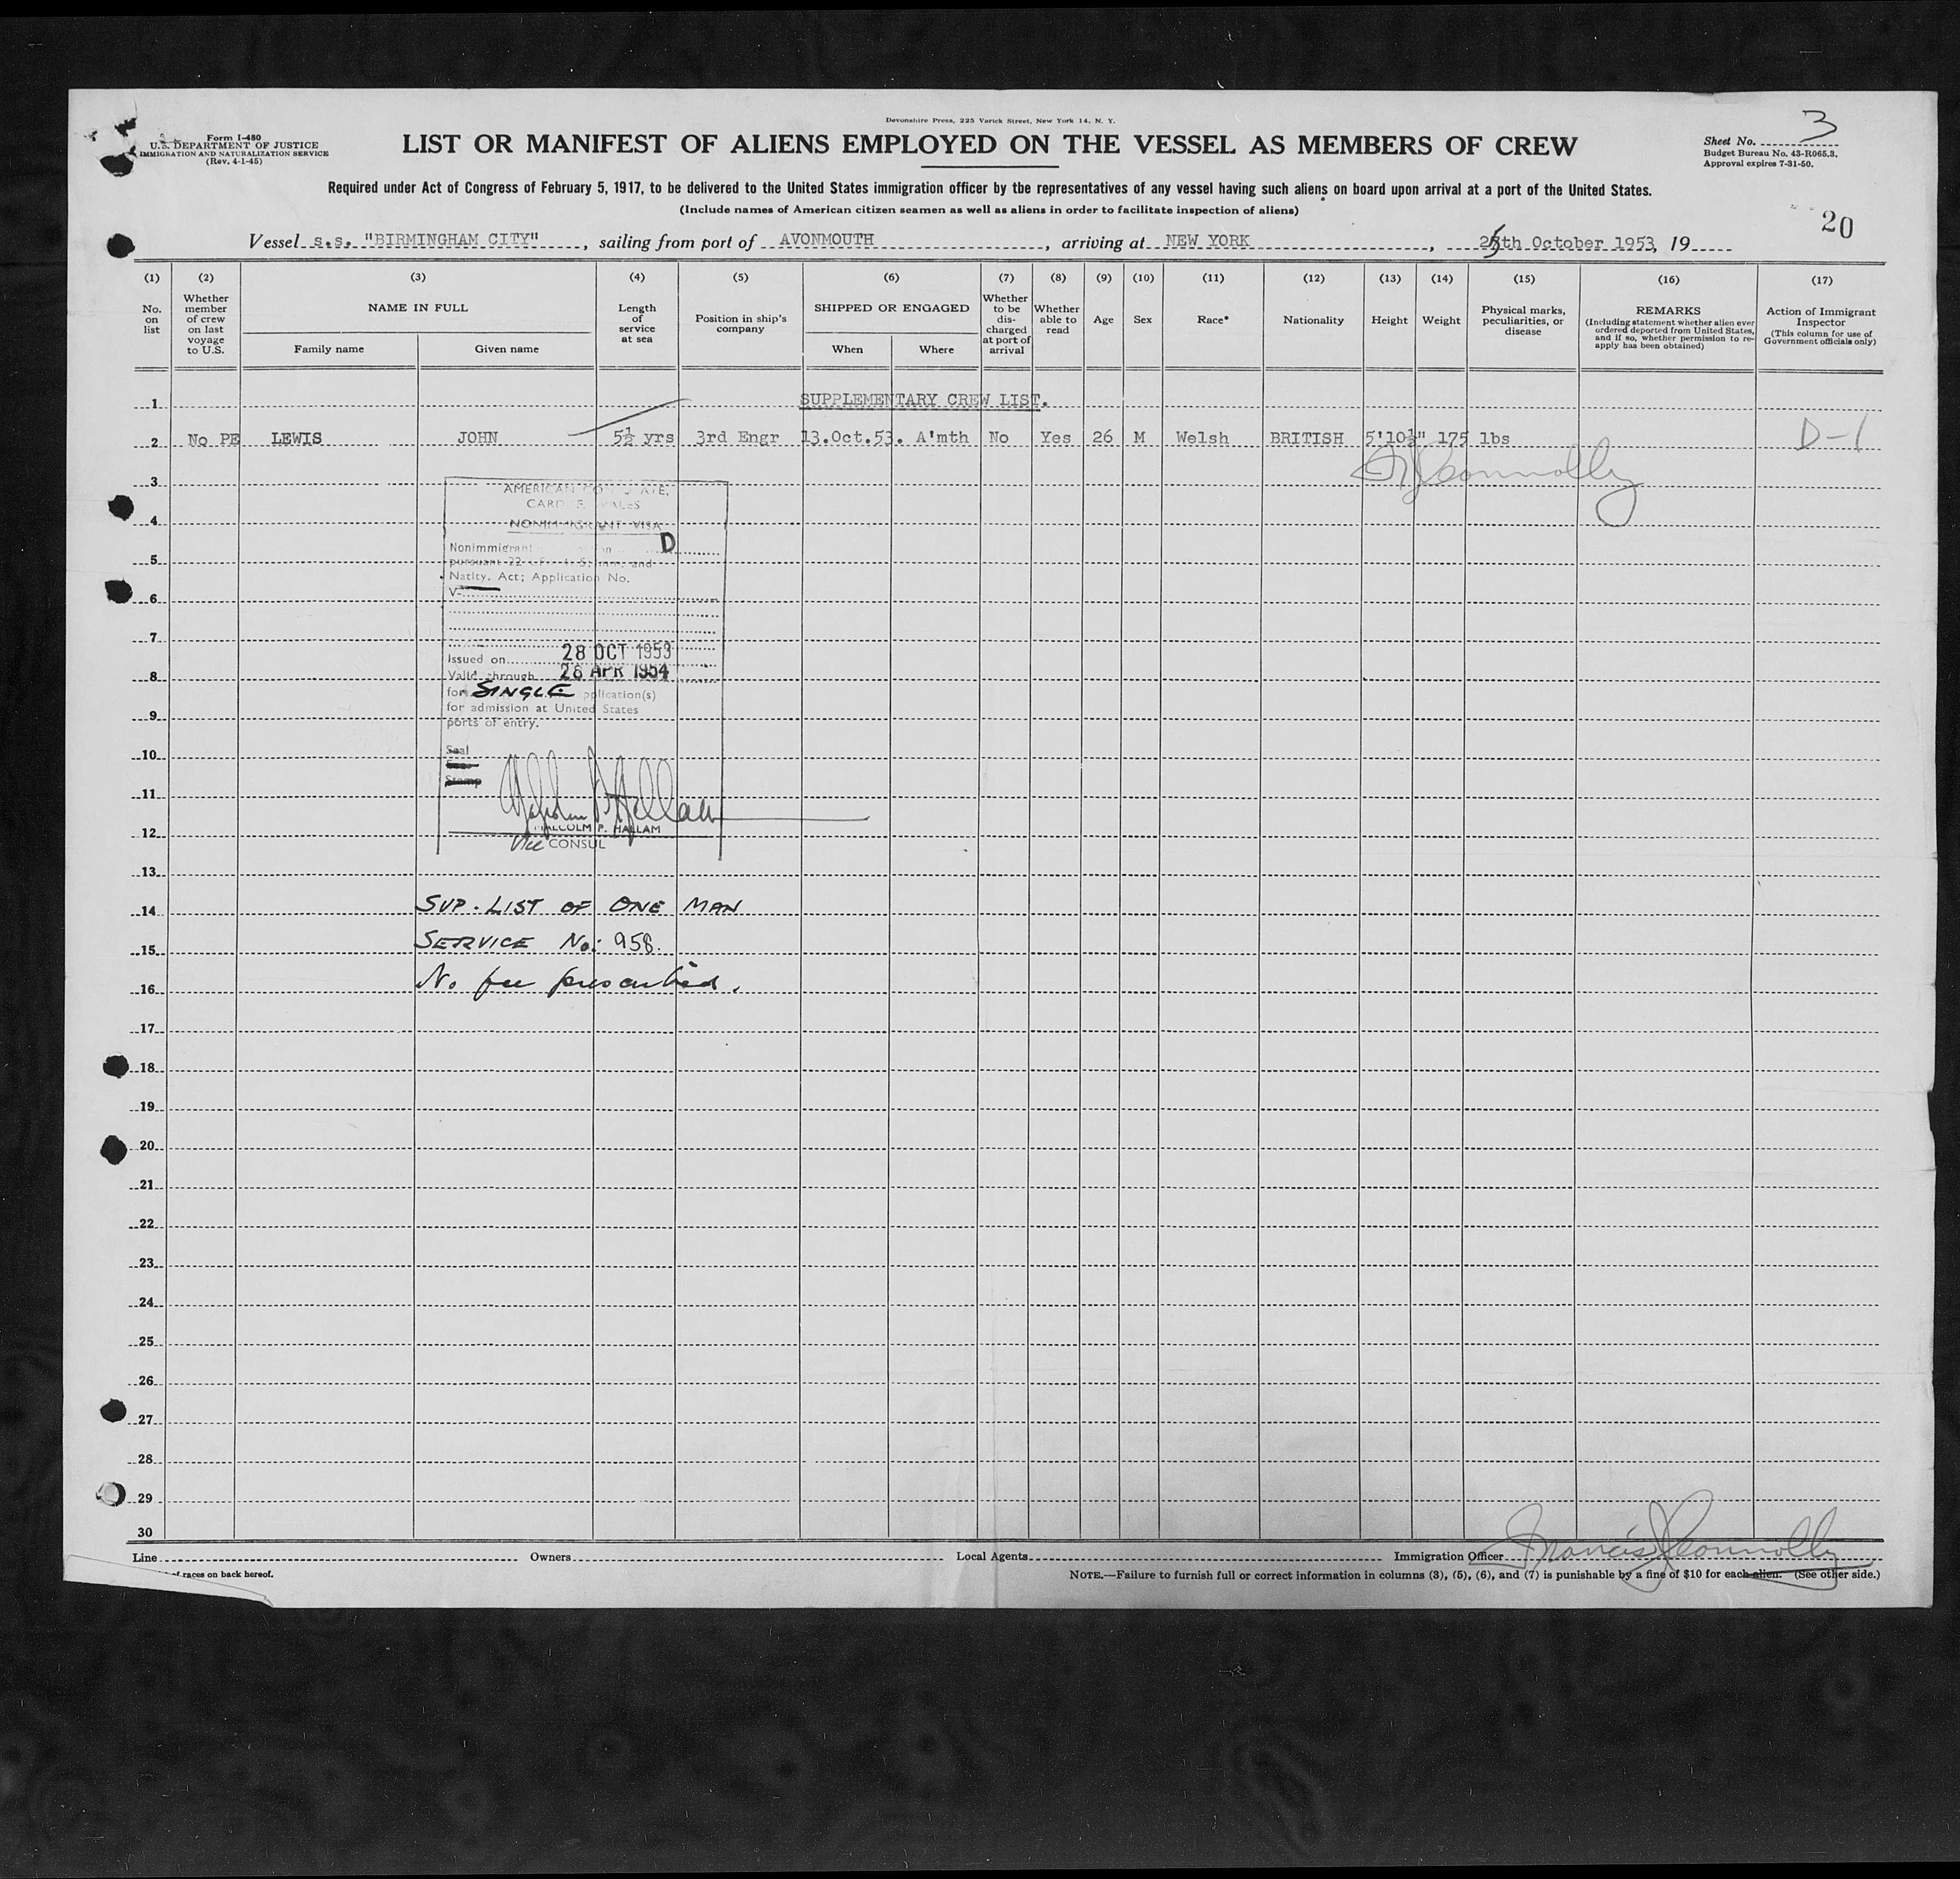 Devonshire Press, 225 Varick Street, New York 14, N. Y.
Form I-480
U.S. DEPARTMENT OF JUSTICE
IMMIGRATION AND NATURALIZATION SERVICE
(Rev. 4-1-45)
LIST OR MANIFEST OF ALIENS EMPLOYED ON THE VESSEL AS MEMBERS OF CREW
Sheet No. 3
Budget Bureau No. 43-R065.3.
Approval expires 7-31-50.
Required under Act of Congress of February 5, 1917, to be delivered to the United States immigration officer by the representatives of any vessel having such aliens on board upon arrival at a port of the United States.
(Include names of American citizen seamen as well as aliens in order to facilitate inspection of aliens)
20
Vessel s.s. "BIRMINGHAM CITY", sailing from port of AVONMOUTH, arriving at NEW YORK, th October 1953, 19
(1) (2) (3) (4) (5) (6) (7) (8) (9) (10) (11) (12) (13) (14) (15) (16) (17)
No. on list
Whether member of crew on last voyage to U.S.
NAME IN FULL
Family name
Given name
Length of service at sea
Position in ship's company
SHIPPED OR ENGAGED
When
Where
Whether to be discharged at port of arrival
Whether able to read
Age
Sex
Race*
Nationality
Height
Weight
Physical marks, peculiarities, or disease
REMARKS
(Including statement whether alien ever ordered deported from United States, and if so, whether permission to re-apply has been obtained)
Action of Immigrant Inspector
(This column for use of Government officials only)
1 SUPPLEMENTARY CREW LIST.
2 No PE LEWIS JOHN 5½ yrs 3rd Engr 13.Oct.53. A'mth No Yes 26 M Welsh BRITISH 5'10½" 175 lbs D-1
Connolly
3
AMERICAN CONSULATE,
CARDIFF, WALES
4
NONIMMIGRANT VISA
Nonimmigrant D
5
pursuant 22 and
Natlty. Act; Application No.
V-
6
7
Issued on 28 OCT 1953
Valid through 28 APR 1954
8
for SINGLE application(s)
for admission at United States
9
ports of entry.
Seal
10
Stamp
11
Malcolm P Hallam
MALCOLM P. HALLAM
12
Vice CONSUL
13
14 SUP. LIST OF ONE MAN
15 SERVICE No: 958.
16 No fee prescribed.
17
18
19
20
21
22
23
24
25
26
27
28
29
30
Line Owners Local Agents Immigration Officer Francis J Connolly
of races on back hereof.
NOTE.—Failure to furnish full or correct information in columns (3), (5), (6), and (7) is punishable by a fine of $10 for each alien. (See other side.)